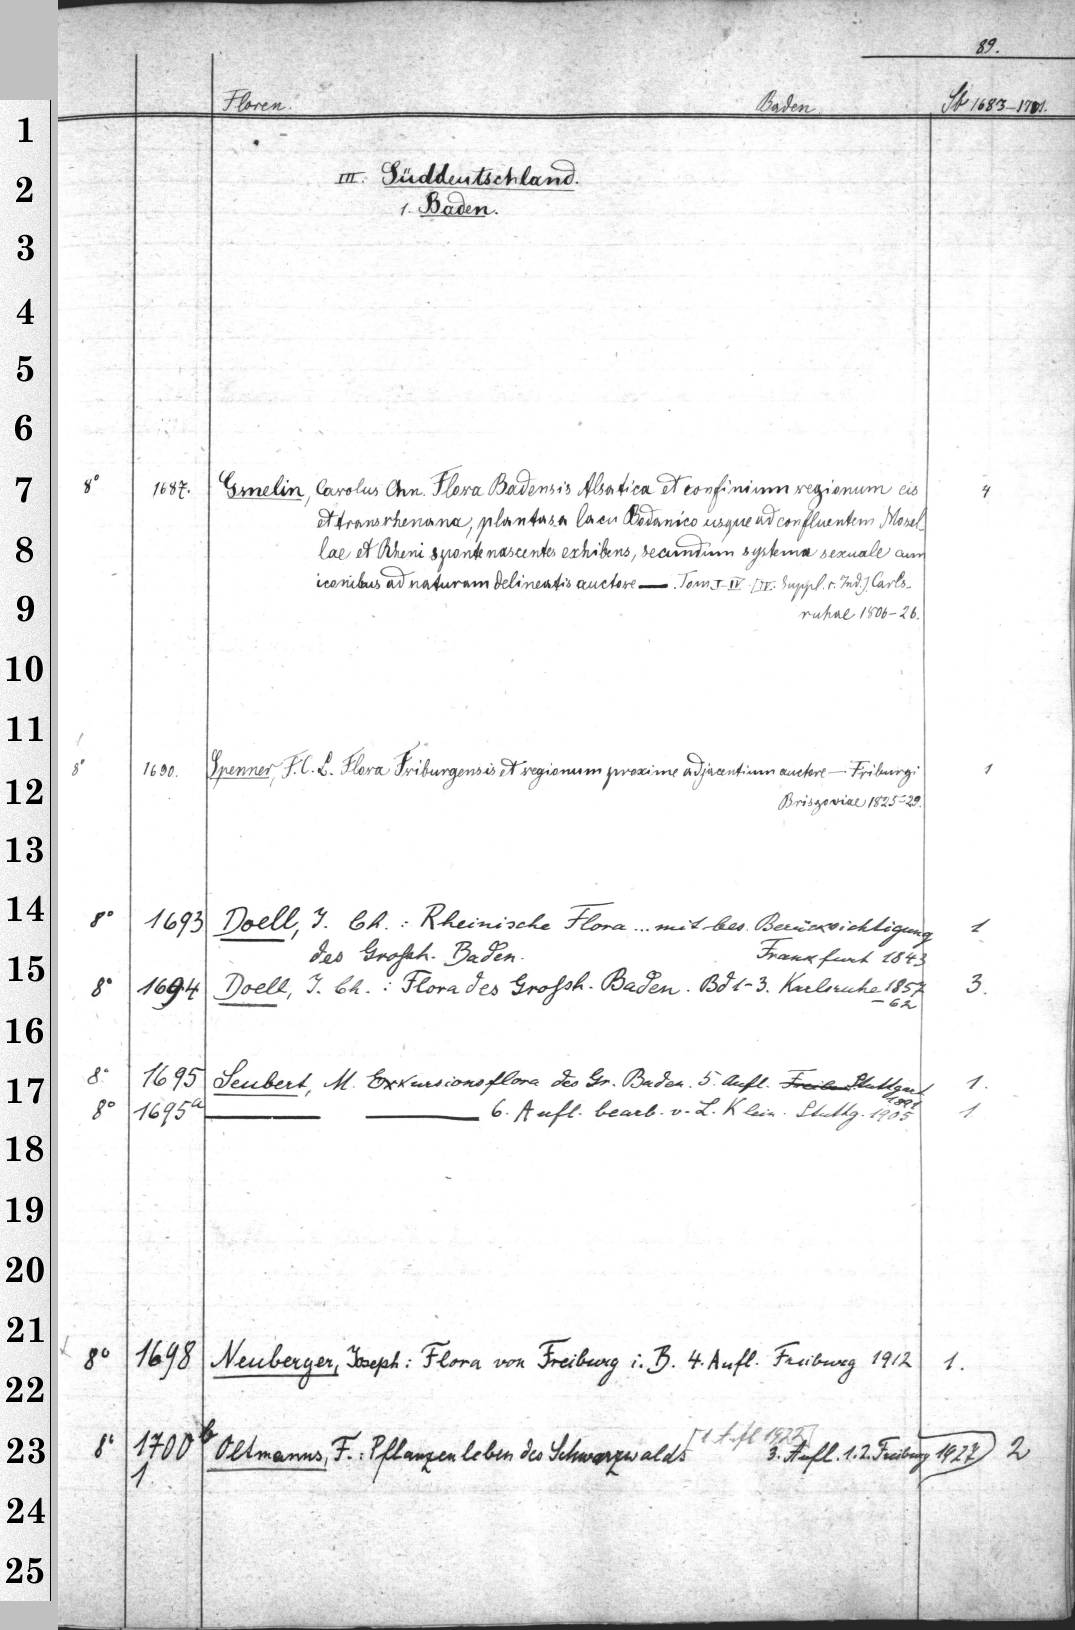 89.
Floren. Baden. St 1683–1701.
III. Süddeutschland.
1. Baden.
8° 1687. Gmelin, Carolus Chr. Flora Badensis Alsatica et confinium regionum cis 4
et transrhenana, plantas a lacu Bodanico usque ad confluentem Mosel-
lae et Rheni sponte nascentes exhibens, secundum systema sexuale cum
iconibus ad naturam delineatis auctore — . Tom. I–IV. [IV. Suppl. c. Ind.] Carls-
ruhae 1806–26.
8° 1690. Spenner, F. C. L. Flora Friburgensis et regionum proxime adjacentium auctore — Friburgi 1
Brisgoviae 1825–29.
8° 1693 Doell, J. Ch. : Rheinische Flora ... mit bes. Berücksichtigung 1
des Grossh. Baden. Frankfurt 1843
8° 1694 Doell, J. Ch. : Flora des Grossh. Baden. Bd 1–3. Karlsruhe 1857 3.
–62
8° 1695 Seubert, M. Exkursionsflora des Gr. Baden. 5. Aufl. Stuttgart 1.
1891
8° 1695a — — 6. Aufl. bearb. v. L. Klein. Stuttg. 1905 1
8° 1698 Neuberger, Joseph : Flora von Freiburg i. B. 4. Aufl. Freiburg 1912 1.
[1 Aufl 1922]
8° 1700b Oltmanns, F. : Pflanzenleben des Schwarzwalds 3. Aufl. 1.2. Freiburg 1927 2
1.
1
2
3
4
5
6
7
8
9
10
11
12
13
14
15
16
17
18
19
20
21
22
23
24
25